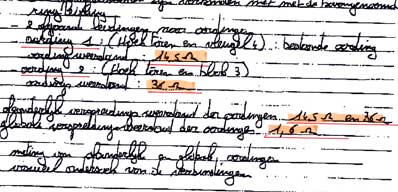 ring
- 2 leidingen naar aardingen
aarding 1 : (Hoek toren en vleugel 4) : bestaande aarding
aardingsweerstand : 14,5 Ω
- aarding 2 : (Hoek toren en blok 3)
aardingsweerstand : 36 Ω
afzonderlijk verspreidingsweerstand der aardingen 14,5 Ω en 36 Ω
globale verspreidingsweerstand der aardingen 1,6 Ω
meting van afzonderlijk en globale aardingen
visueel onderzoek van de verbindingen